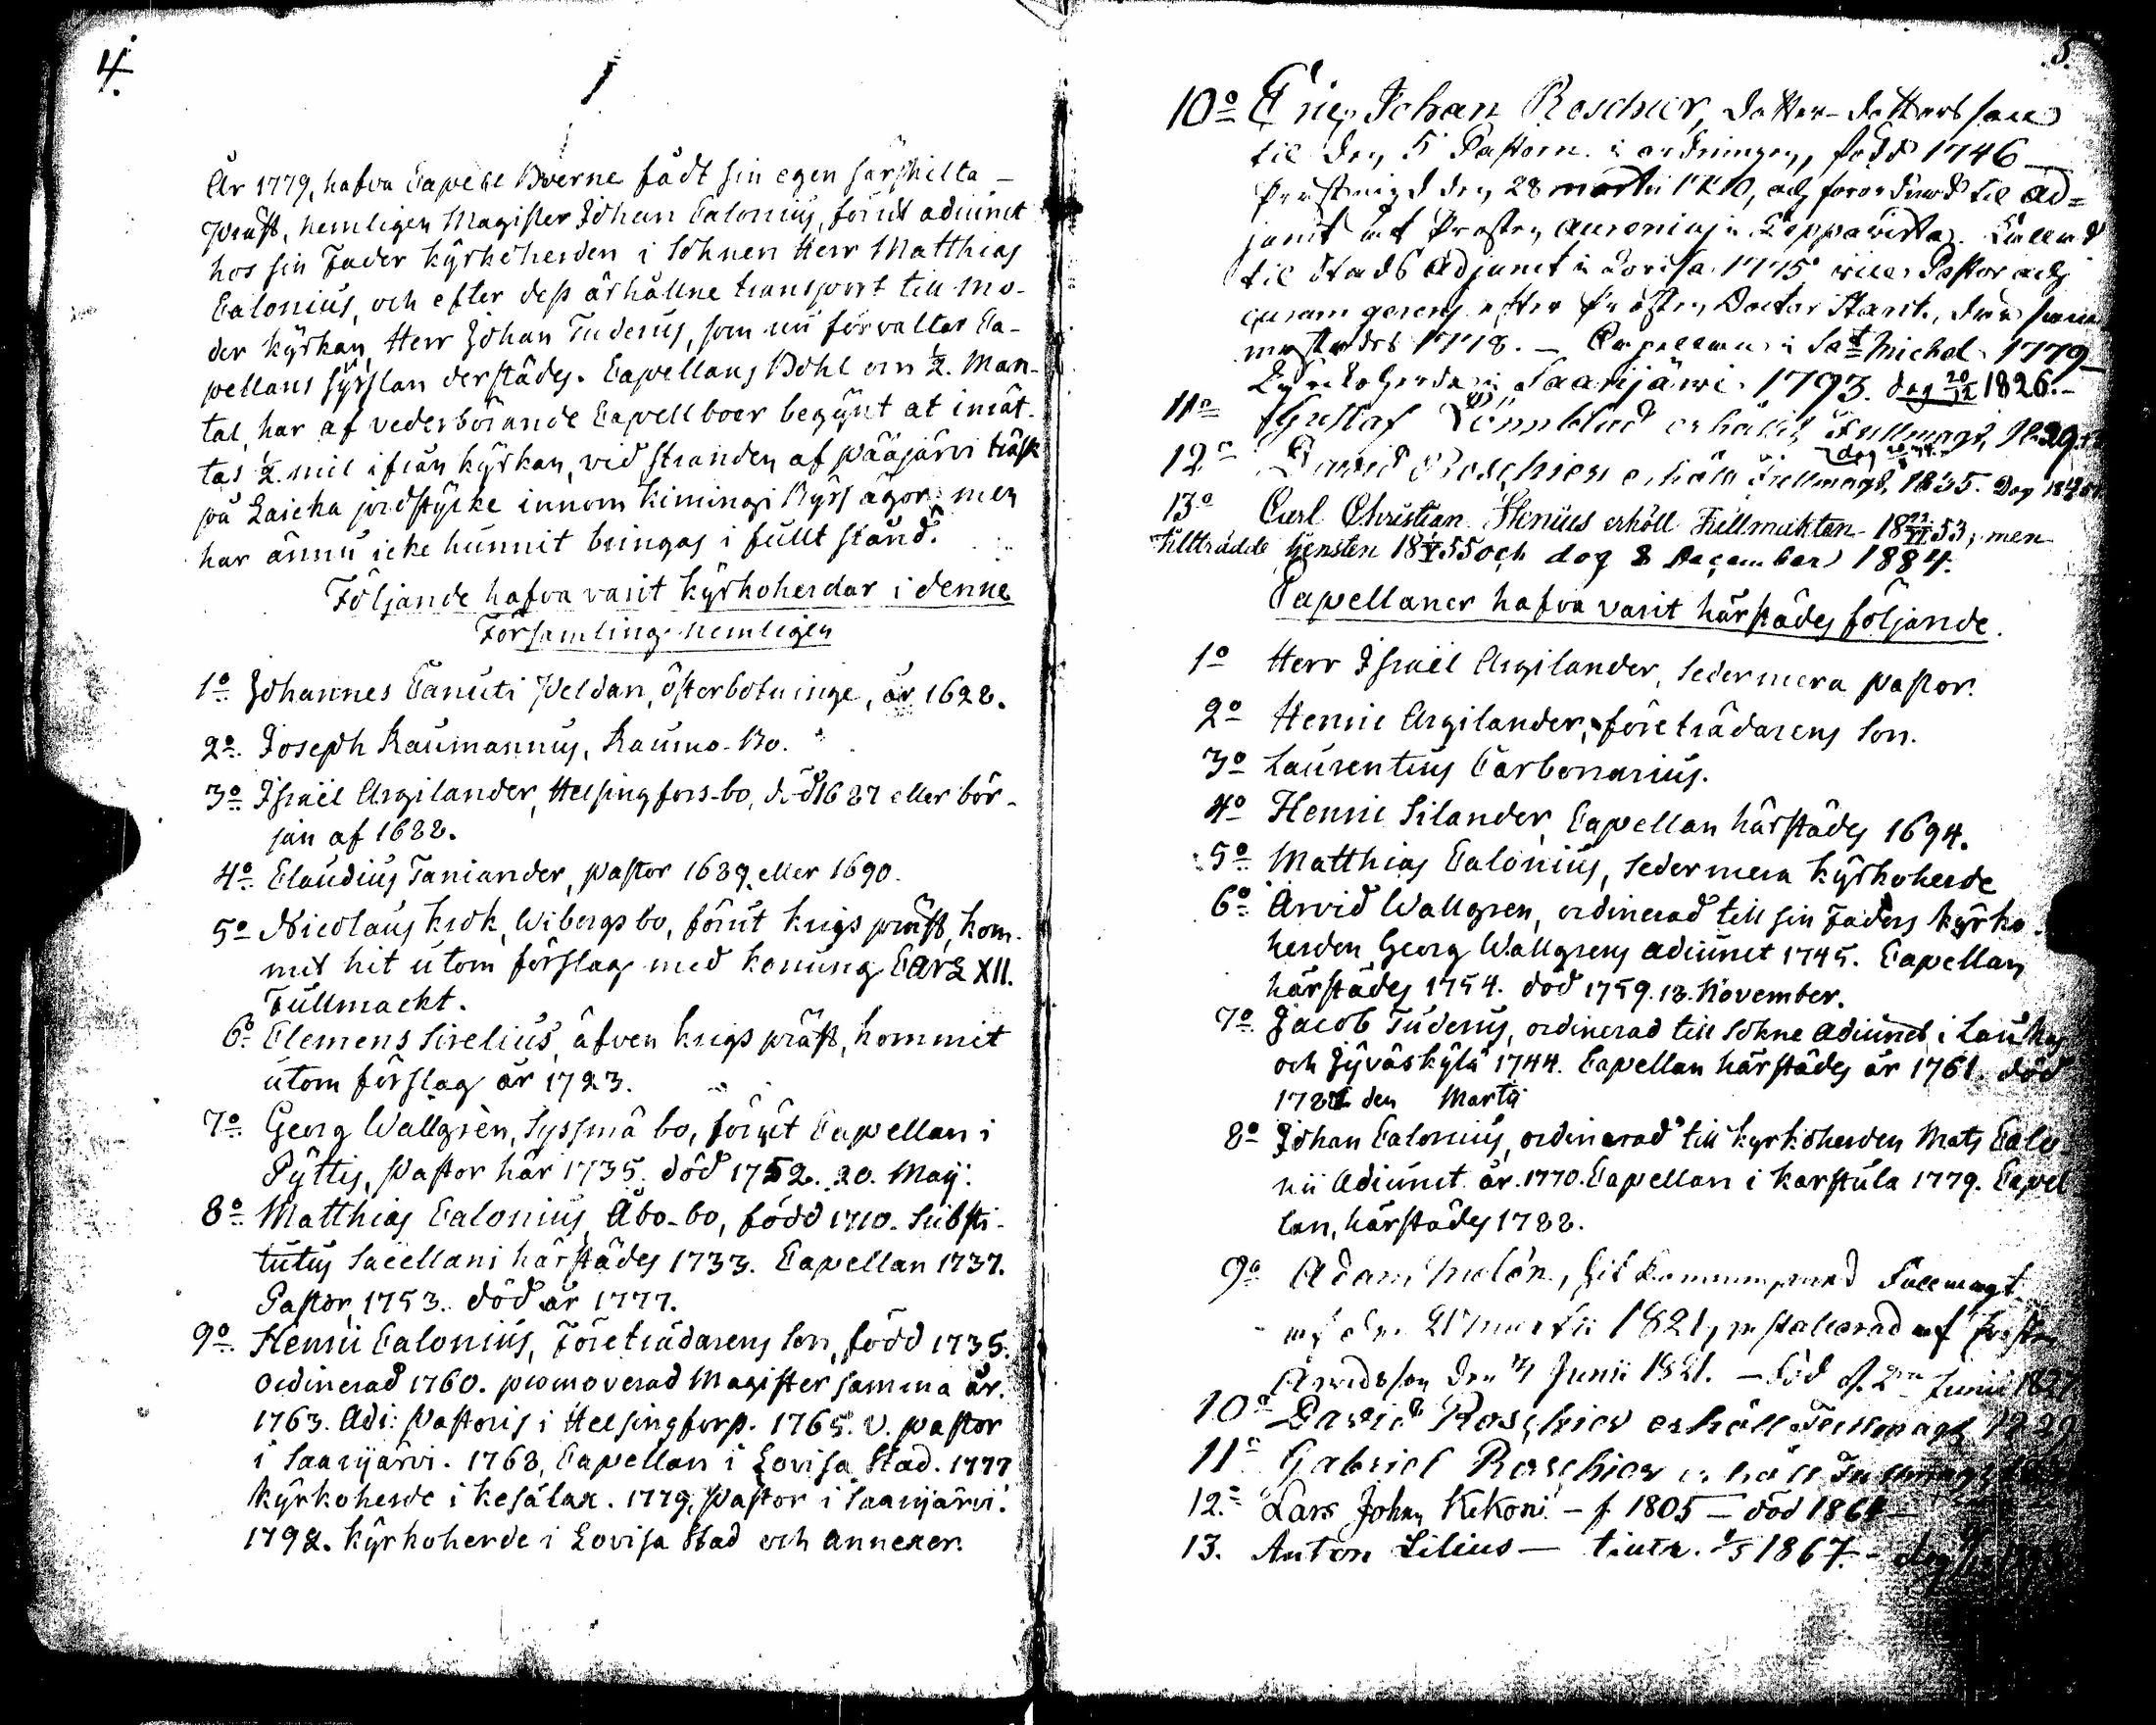 4.
År 1779, hafva Capell Boerne fådt sin egen särskilta
präst, nemligen Magister Johan Calonius, förut adiunct
hos sin Fader kyrkoherden i Soknen Herr Matthias
Calonius, och efter dess århållne transport till Mo-
der kyrkan, Herr Johan Tuderus, som nu förvaltar Ca-
pellans sysslan derstädes. Capellans Bohl om ½. Man-
tal, har af vederbörande Capellboer begynt at inrät-
tas ½ mil ifrån kyrkan, vid stranden af pääjärvi träsk
på Laicka jordstycke innom Kimingi Byss ägor: men
har ännu icke hunnit bringas i fullt stånd.
Följande hafva varit kyrkoherdar i denne
Församling nemligen
1o Johannes Canuti Peldan, österbotninge, år 1628.
2o. Joseph Raumannus, Raumo-Bo.
3o. Israël Argilander, Helsingfors-bo, död 1687 eller bör-
jan af 1688.
4o. Claudius Taniander, pastor 1689. eller 1690.
5o Nicolaus Krok, Wiborgs bo, förut krigs präst, kom-
mit hit utom förslag med Konung CARL XII.
Fullmackt.
6o Clemens Sirelius, äfven krigs präst, kommit
utom förslag år 1723.
7o. Georg Wallgrèn, Syssmä bo, förut Capellan i
Pyttis, pastor här 1735. död 1752. 20. Maij.
8o. Matthias Calonius, Åbo-bo, född 1710. Substi-
tutus Sacellani härstädes 1733. Capellan 1737.
Pastor, 1753. död år 1777.
9o. Henric Calonius, Företrädarens Son, född 1735.
ordinerad 1760. promoverad Magister samma år.
1763. Adi: pastoris i Helsingforss. 1765. v. pastor
i Saarijärvi. 1768, Capellan i Lovisa Stad. 1777
kyrkoherde i Kesälax. 1779, pastor i Saarijärvi.
1792. kyrkoherde i Lovisa Stad och Annexer.
5.
10o Eric Johan Roschier, dotter-dotters son
til den 5 Pastorn i ordningen, född 1746
Prästvigd den 28 martii 1770, och förordnad til Ad=
junct åt Prosten Auroenius i Leppävirta. Kallad
til Stads Adjunct i Lovisa 1775 vice Pastor och
curam gerens efter Prosten Doctor Starck, dær samma-
städes 1778. — Capellan i Sat Michel 1779
Kyrkoherde i Saarijärwi 1793. dog 20/12 1826.
11o Gustaf Lönnblad erhållit Fullmagt 1829
12o David Roschier erhöll Fullmagt 1835. Dog
13o Carl Christian Stenius erhöll Fullmakten 18 53; men
tillträdde tjensten 18 55 och dog 8 December 1884.
Capellaner hafva varit härstädes följande.
1o Herr Israël Argilander, sedermera pastor.
2o Henric Argilander, företrädarens Son.
3o Laurentius Carbonarius.
4o Henric Silander, Capellan härstädes 1694.
5o Matthias Calonius, Sedermera kyrkoherde
6o Arvid Wallgren, ordinerad till sin Faders kyrko-
herden Georg Wallgrens adiunct 1745. Capellan
härstädes 1754. död 1759. 13. November.
7o. Jacob Tuderus, ordinerad till Sokne Adiunct i Laukas
och Jyväskylä 1744. Capellan härstädes år 1761. död
178 den Martii
8o Johan Calonius, ordinerad till kyrkoherden Mats Calo-
nii Adiunct år 1770. Capellan i Karstula 1779. Capel
lan, härstädes 1788.
9o Adam Melén, hit kommen med Fullmagt
af den 21 martii 1821, installerad af Prosten
Arvidsson den 4 Junii 1821. — död d. 2 Junii 1827
10o David Roschier erhöll Fullmagt 1829
11o Gabriel Roschier erhöll Fullmagt
12. Lars Johan Kekoni — f 1805 — död 1864
13. Anton Lilius — tilltr. 1/5 1867. — dog